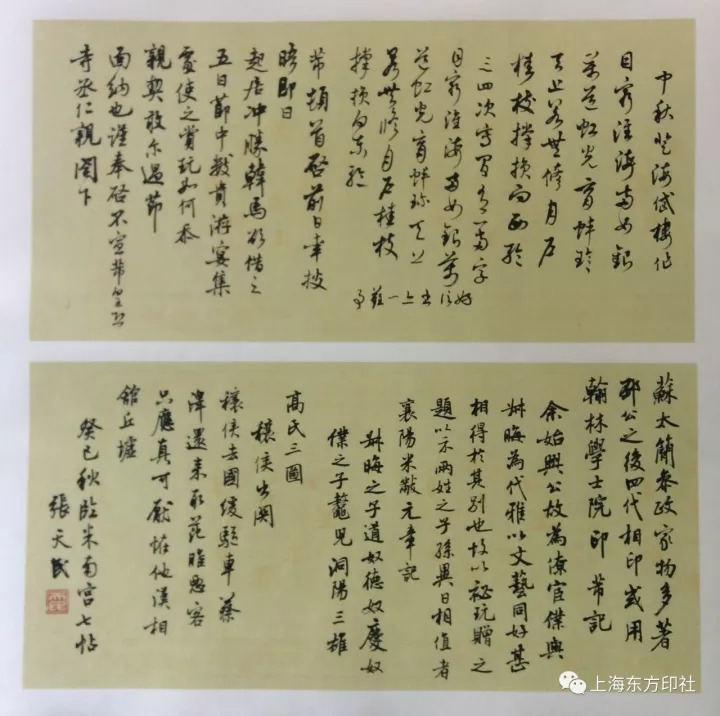 中秋登海岱樓作
目窮淮海兩如銀
萬道虹光育蚌珍
天上若無修月戶
桂枝撐損向西輪
三四次寫間有一兩字
好信書亦一難事
目窮淮海兩如銀萬
道虹光育蚌珍天上
若無修月戶桂枝
撐損向東輪
芾頓首啓前日幸披
晤即日
起居冲勝韓馬欲借之
五日節中數貴游宴集
處使之賞玩如何忝
親契敢爾過節
面納也謹奉啓不宣芾皇恐
寺丞仁親閣下
蘇太簡參政家物多著
邳公之後四代相印或用
翰林學士院印芾記
余始興公故為僚官僕與
叔晦為代雅以文藝同好甚
相得於其別也故以祕玩贈之
題以示兩姓之子孫異日相值者
襄陽米黻元章記
叔晦之子道奴德奴慶奴
僕之子鼇兒洞陽三雄
高氏三圖
穰侯出關
穰侯去國緩驅車蔡
澤還來取范雎愚客
只應真可厭怪他漢相
館丘墟
癸巳秋臨米南宮七帖
張天民
上海东方印社